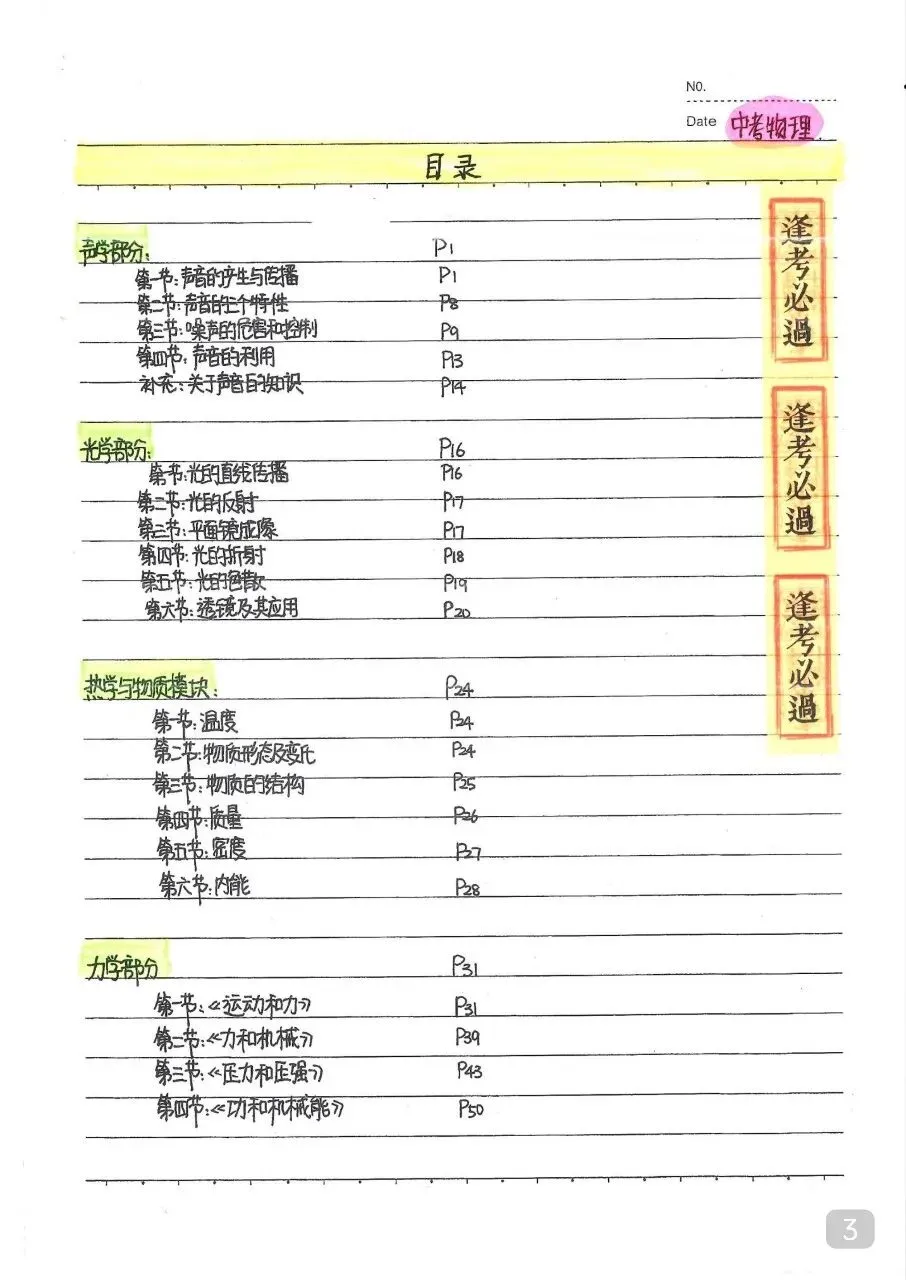 NO.
Date 中考物理
目录
声学部分: P1
第一节:声音的产生与传播 P1
第二节:声音的三个特性 P8
第三节:噪声的危害和控制 P9
第四节:声音的利用 P13
补充:关于声音的知识 P14
光学部分: P16
第一节:光的直线传播 P16
第二节:光的反射 P17
第三节:平面镜成像 P17
第四节:光的折射 P18
第五节:光的色散 P19
第六节:透镜及其应用 P20
热学与物质模块: P24
第一节:温度 P24
第二节:物质形态及变化 P24
第三节:物质的结构 P25
第四节:质量 P26
第五节:密度 P27
第六节:内能 P28
力学部分 P31
第一节:《运动和力》 P31
第二节:《力和机械》 P39
第三节:《压力和压强》 P43
第四节:《功和机械能》 P50
逢考必過
逢考必過
逢考必過
3